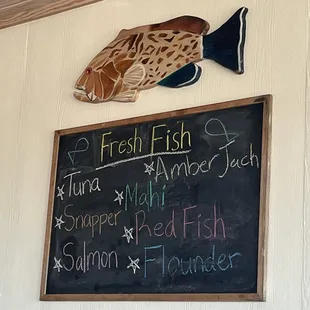 Fresh Fish
Tuna
AmberJach
Mahi
Snapper
Red Fish
Salmon
Flounder